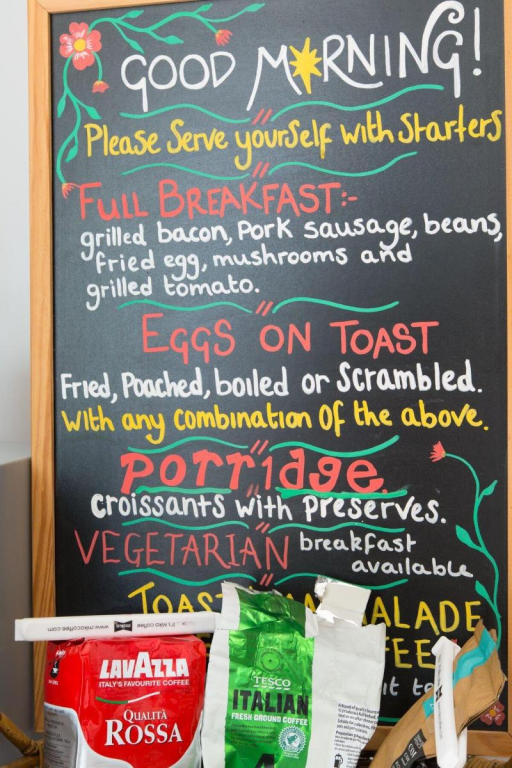 GOOD MORNING!
Please Serve yourself with Starters
FULL BREAKFAST:-
grilled bacon, Pork sausage, beans,
fried egg, mushrooms and
grilled tomato.
EGGS ON TOAST
Fried, Poached, boiled or Scrambled.
With any combination of the above.
porridge
croissants with preserves.
VEGETARIAN breakfast
available
TOAST
www.mikocoffee.com
it's miko coffee
LAVAZZA
ITALY'S FAVOURITE COFFEE
QUALITÀ
ROSSA
TESCO
ITALIAN
FRESH GROUND COFFEE
4